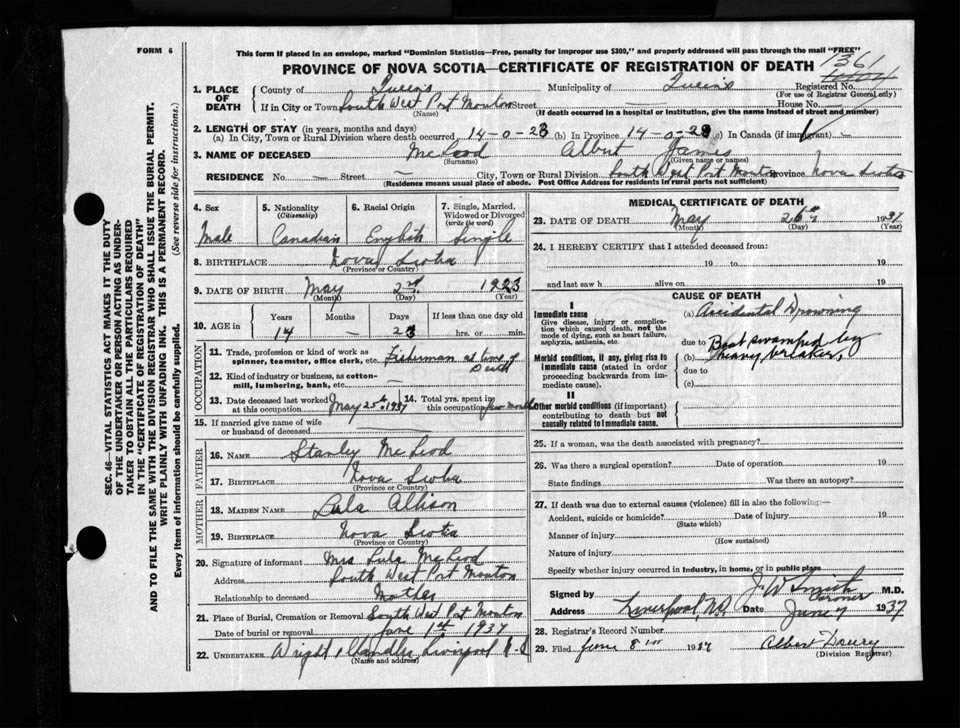 FORM 6
This form if placed in an envelope, marked "Dominion Statistics—Free, penalty for improper use $300," and properly addressed will pass through the mail "FREE"
PROVINCE OF NOVA SCOTIA—CERTIFICATE OF REGISTRATION OF DEATH
1361
Registered No.
(For use of Registrar General only)
1. PLACE OF DEATH
County of Queens Municipality of Queens
If in City or Town South West Port Mouton Street — House No. —
(Name) (If death occurred in a hospital or institution, give the name instead of street and number)
2. LENGTH OF STAY (in years, months and days)
(a) In City, Town or Rural Division where death occurred 14-0-23 (b) In Province 14-0-23 (c) In Canada (if immigrant) —
3. NAME OF DECEASED McLeod Albert James
(Surname) (Given name or names)
RESIDENCE No. — Street — City, Town or Rural Division South West Port Mouton Province Nova Scotia
(Residence means usual place of abode. Post Office Address for residents in rural parts not sufficient)
4. Sex 5. Nationality (Citizenship) 6. Racial Origin 7. Single, Married, Widowed or Divorced (write the word)
Male Canadian English Single
8. BIRTHPLACE Nova Scotia
(Province or Country)
9. DATE OF BIRTH May 2nd 1923
(Month) (Day) (Year)
10. AGE in Years Months Days If less than one day old
14 — 23 hrs. or min.
OCCUPATION
11. Trade, profession or kind of work as spinner, teamster, office clerk, etc. Fisherman at time of Death
12. Kind of industry or business, as cotton-mill, lumbering, bank, etc. —
13. Date deceased last worked at this occupation May 25th 1937 14. Total yrs. spent in this occupation few months
15. If married give name of wife or husband of deceased
FATHER
16. NAME Stanley McLeod
17. BIRTHPLACE Nova Scotia
(Province or Country)
MOTHER
18. MAIDEN NAME Lula Allison
19. BIRTHPLACE Nova Scotia
(Province or Country)
20. Signature of informant Mrs Lula McLeod
Address South West Port Mouton
Relationship to deceased Mother
21. Place of Burial, Cremation or Removal South West Port Mouton
Date of burial or removal June 1st 1937
22. UNDERTAKER Wright, Chandler Liverpool N.S
(Name and address)
MEDICAL CERTIFICATE OF DEATH
23. DATE OF DEATH May 26th 1937
(Month) (Day) (Year)
24. I HEREBY CERTIFY that I attended deceased from:
19 to 19
and last saw h alive on 19
CAUSE OF DEATH
I
Immediate cause
Give disease, injury or complication which caused death, not the mode of dying, such as heart failure, asphyxia, asthenia, etc.
(a) Accidental Drowning
due to
Morbid conditions, if any, giving rise to immediate cause (stated in order proceeding backwards from immediate cause).
(b) Boat swamped by heavy breaker,
due to
(c)
II
Other morbid conditions (if important) contributing to death but not causally related to immediate cause.
25. If a woman, was the death associated with pregnancy?
26. Was there a surgical operation? Date of operation 19
State findings Was there an autopsy?
27. If death was due to external causes (violence) fill in also the following:—
Accident, suicide or homicide? Date of injury 19
(State which)
Manner of injury
(How sustained)
Nature of injury
Specify whether injury occurred in industry, in home, or in public place
Signed by J W Smith M.D.
Coroner
Address Liverpool, N.S. Date June 7 1937
28. Registrar's Record Number
29. Filed June 8 1937 Albert
(Division Registrar)
SEC. 46—VITAL STATISTICS ACT MAKES IT THE DUTY
OF THE UNDERTAKER OR PERSON ACTING AS UNDER-
TAKER TO OBTAIN ALL THE PARTICULARS REQUIRED
IN THE "CERTIFICATE OF REGISTRATION OF DEATH"
AND TO FILE THE SAME WITH THE DIVISION REGISTRAR WHO SHALL ISSUE THE BURIAL PERMIT.
WRITE PLAINLY WITH UNFADING INK. THIS IS A PERMANENT RECORD.
Every item of information should be carefully supplied. (See reverse side for instructions.)